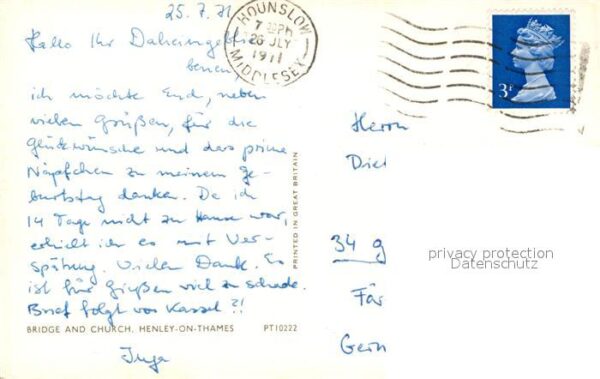 25.7.71
Hallo Ihr Daheimgeblie-
benen,
ich möchte Euch, neben
vielen Grüßen, für die
Glückwünsche und das prima
Näpfchen zu meinem Ge-
burtstag danken. Da ich
14 Tage nicht zu Hause war,
erhielt ich es mit Ver-
spätung. Vielen Dank. Es
ist für Gießen viel zu schade.
Brief folgt von Kassel?!
BRIDGE AND CHURCH, HENLEY-ON-THAMES PT10222
Inga
PRINTED IN GREAT BRITAIN
HOUNSLOW
26 JLY
1971
MIDDLESEX
3P
Herrn
Diet
34 g
Fär
Germ
privacy protection
Datenschutz